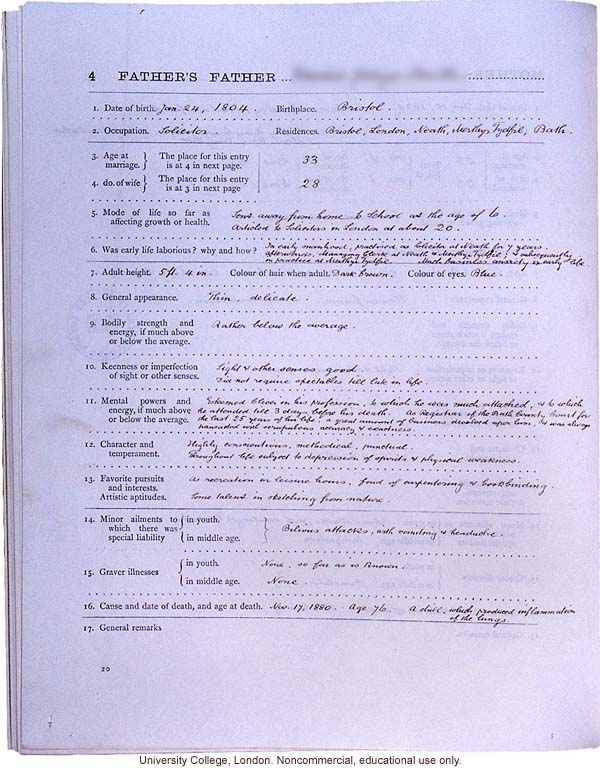 4 FATHER'S FATHER ...
1. Date of birth. Jan. 24, 1804. Birthplace. Bristol.
2. Occupation. Solicitor. Residences. Bristol, London, Neath, Merthyr Tydfil, Bath.
3. Age at marriage. } The place for this entry is at 4 in next page. 33
4. do. of wife } The place for this entry is at 3 in next page. 28
5. Mode of life so far as affecting growth or health. Sent away from home to School at the age of 6.
Articled to Solicitors in London at about 20.
6. Was early life laborious? why and how? In early manhood, practised as Solicitor at Neath for 7 years.
afterwards, Managing Clerk at Neath & Merthyr Tydfil; & subsequently
in practice at Merthyr Tydfil. Much business anxiety in early life
7. Adult height. 5 ft. 4 in. Colour of hair when adult. Dark brown. Colour of eyes. Blue.
8. General appearance. Thin, delicate.
9. Bodily strength and energy, if much above or below the average. Rather below the average.
10. Keenness or imperfection of sight or other senses. Sight & other senses good.
Did not require spectacles till late in life.
11. Mental powers and energy, if much above or below the average. Esteemed clever in his profession, to which he was much attached, & to which
he attended till 3 days before his death. As Registrar of the Bath County Court for
the last 25 years of his life, a great amount of business devolved upon him, & was always
transacted with scrupulous accuracy & exactness.
12. Character and temperament. Highly conscientious, methodical, punctual.
Throughout life subject to depression of spirits & physical weakness.
13. Favorite pursuits and interests. Artistic aptitudes. As recreation in leisure hours, fond of carpentering & bookbinding.
Some talent in sketching from nature.
14. Minor ailments to which there was special liability { in youth. in middle age. } Bilious attacks, with vomiting & headache.
15. Graver illnesses { in youth. None, so far as is known.
in middle age. None.
16. Cause and date of death, and age at death. Nov. 17, 1880. Age 76. A chill, which produced inflammation
of the lungs.
17. General remarks
20
University College, London. Noncommercial, educational use only.